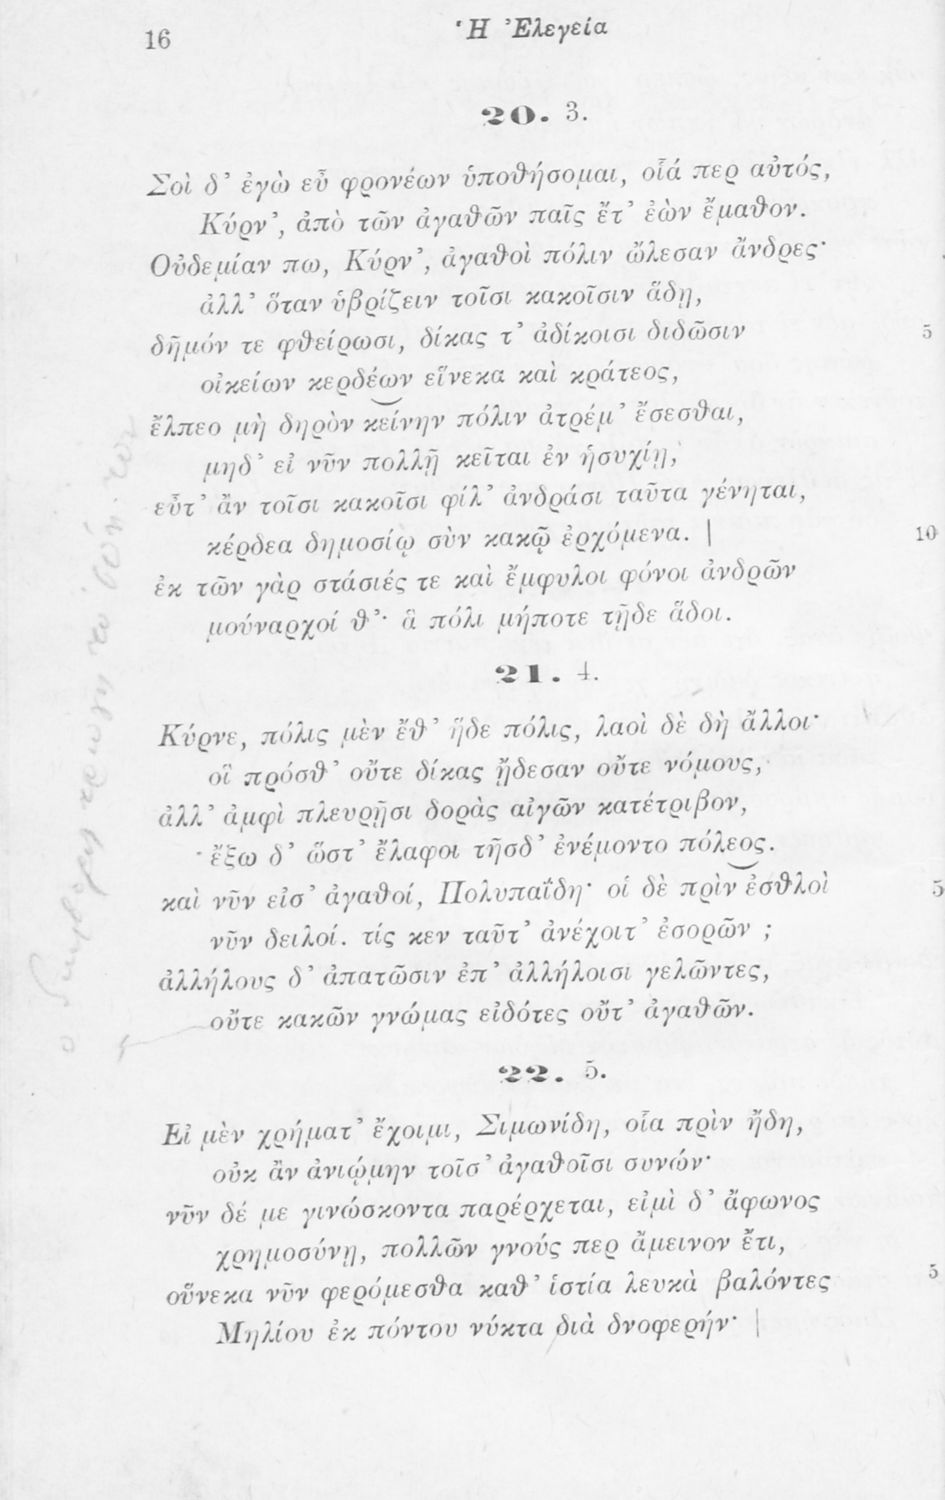 16
Ἡ Ἐλεγεία
20. 3.
Σοὶ δ’ ἐγὼ εὖ φρονέων ὑποθήσομαι, οἷά περ αὐτός,
Κύρν’, ἀπὸ τῶν ἀγαθῶν παῖς ἔτ’ ἐὼν ἔμαθον.
Οὐδεμίαν πω, Κύρν’, ἀγαθοὶ πόλιν ὤλεσαν ἄνδρες·
ἀλλ’ ὅταν ὑβρίζειν τοῖσι κακοῖσιν ἅδῃ,
δῆμόν τε φθείρωσι, δίκας τ’ ἀδίκοισι διδῶσιν 5
οἰκείων κερδέων εἵνεκα καὶ κράτεος,
ἔλπεο μὴ δηρὸν κείνην πόλιν ἀτρέμ’ ἔσεσθαι,
μηδ’ εἰ νῦν πολλῇ κεῖται ἐν ἡσυχίῃ,
εὖτ’ ἂν τοῖσι κακοῖσι φίλ’ ἀνδράσι ταῦτα γένηται,
κέρδεα δημοσίῳ σὺν κακῷ ἐρχόμενα. | 10
ἐκ τῶν γὰρ στάσιές τε καὶ ἔμφυλοι φόνοι ἀνδρῶν
μούναρχοί θ’· ἃ πόλι μήποτε τῇδε ἅδοι.
21. 4.
Κύρνε, πόλις μὲν ἔθ’ ἥδε πόλις, λαοὶ δὲ δὴ ἄλλοι·
οἳ πρόσθ’ οὔτε δίκας ᾔδεσαν οὔτε νόμους,
ἀλλ’ ἀμφὶ πλευρῇσι δορὰς αἰγῶν κατέτριβον,
ἔξω δ’ ὥστ’ ἔλαφοι τῆσδ’ ἐνέμοντο πόλεος.
καὶ νῦν εἰσ’ ἀγαθοί, Πολυπαΐδη· οἱ δὲ πρὶν ἐσθλοὶ 5
νῦν δειλοί. τίς κεν ταῦτ’ ἀνέχοιτ’ ἐσορῶν ;
ἀλλήλους δ’ ἀπατῶσιν ἐπ’ ἀλλήλοισι γελῶντες,
οὔτε κακῶν γνώμας εἰδότες οὔτ’ ἀγαθῶν.
22. 5.
Εἰ μὲν χρήματ’ ἔχοιμι, Σιμωνίδη, οἷα πρὶν ἤδη,
οὐκ ἂν ἀνιῴμην τοῖσ’ ἀγαθοῖσι συνών·
νῦν δέ με γινώσκοντα παρέρχεται, εἰμὶ δ’ ἄφωνος
χρημοσύνῃ, πολλῶν γνούς περ ἄμεινον ἔτι,
οὕνεκα νῦν φερόμεσθα καθ’ ἱστία λευκὰ βαλόντες 5
Μηλίου ἐκ πόντου νύκτα διὰ δνοφερήν· |